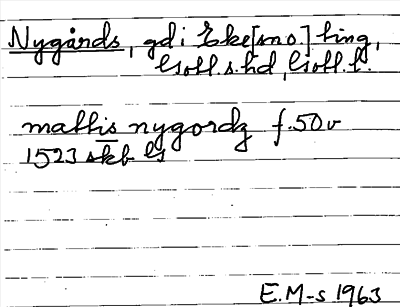 Nygårds, gd i Eke[smo.] ting,
Gotl. s. hd, Gotl. l.
mattis nygordz f. 50v
1523 skb G
E.M-s 1963